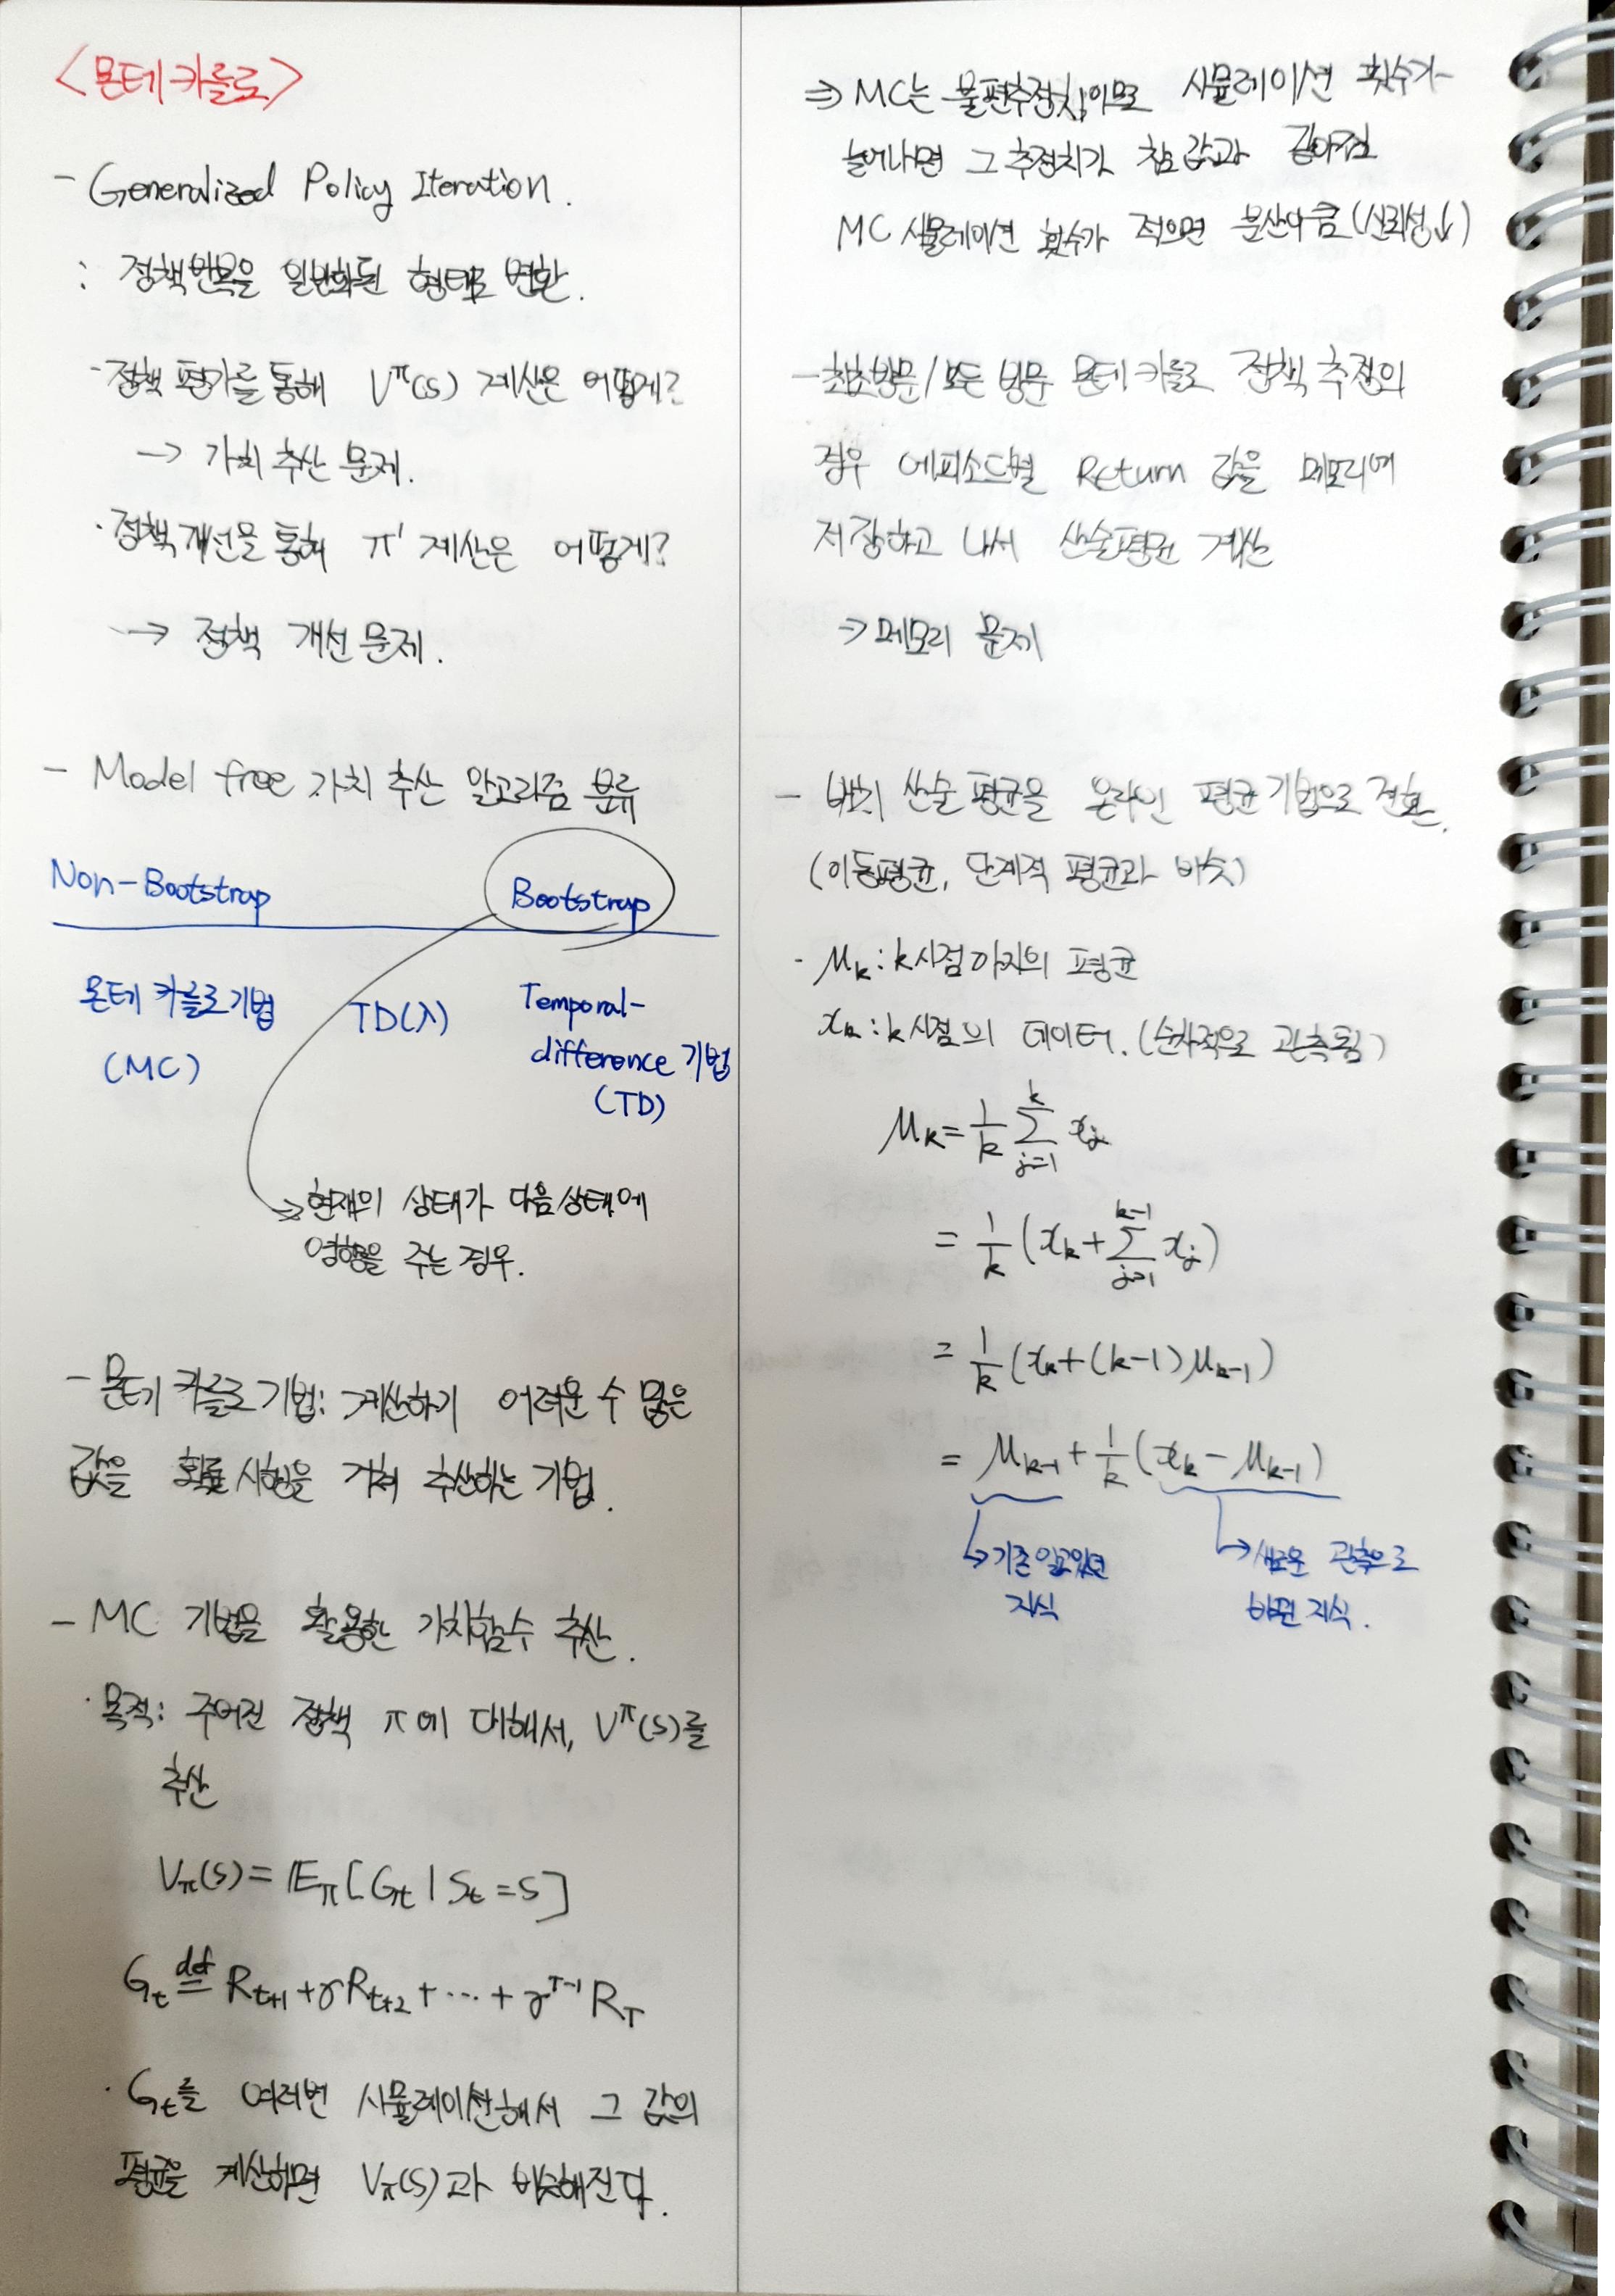 <몬테카를로>
- Generalized Policy Iteration.
: 정책반복을 일반화된 형태로 변환.
·정책 평가를 통해 V^π(s) 계산은 어떻게?
→ 가치 추산 문제.
·정책개선을 통해 π' 계산은 어떻게?
→ 정책 개선 문제.
- Model free 가치 추산 알고리즘 분류
Non-Bootstrap Bootstrap
몬테 카를로기법 TD(λ) Temporal-
(MC) difference 기법
(TD)
→현재의 상태가 다음상태에
영향을 주는 경우.
- 몬테 카를로 기법: 계산하기 어려운 수 많은
값을 확률 시행을 거쳐 추산하는 기법.
- MC 기법을 활용한 가치함수 추산.
·목적: 주어진 정책 π에 대해서, V^π(s)를
추산
V_π(s) = E_π[G_t | S_t = s]
G_t def= R_{t+1} + γR_{t+2} + ··· + γ^{T-1} R_T
· G_t를 여러번 시뮬레이션해서 그 값의
평균을 계산하면 V_π(s)과 비슷해진다.
⇒ MC는 불편추정치이므로 시뮬레이션 횟수가
늘어나면 그 추정치가 참값과 같아짐
MC 시뮬레이션 횟수가 적으면 분산이 큼(신뢰성↓)
- 최초방문/모든 방문 몬테 카를로 정책 추정의
경우 에피소드별 Return 값을 메모리에
저장하고 나서 산술평균 계산
→메모리 문제
- 배치 산술 평균을 온라인 평균기법으로 전환.
(이동평균, 단계적 평균과 비슷)
· μ_k : k시점까지의 평균
x_k : k시점의 데이터. (순차적으로 관측됨)
μ_k = 1/k ∑_{j=1}^{k} x_j
= 1/k (x_k + ∑_{j=1}^{k-1} x_j)
= 1/k (x_k + (k-1)μ_{k-1})
= μ_{k-1} + 1/k (x_k - μ_{k-1})
↳기존 알고있던 ↳새로운 관측으로
지식 바뀐 지식.